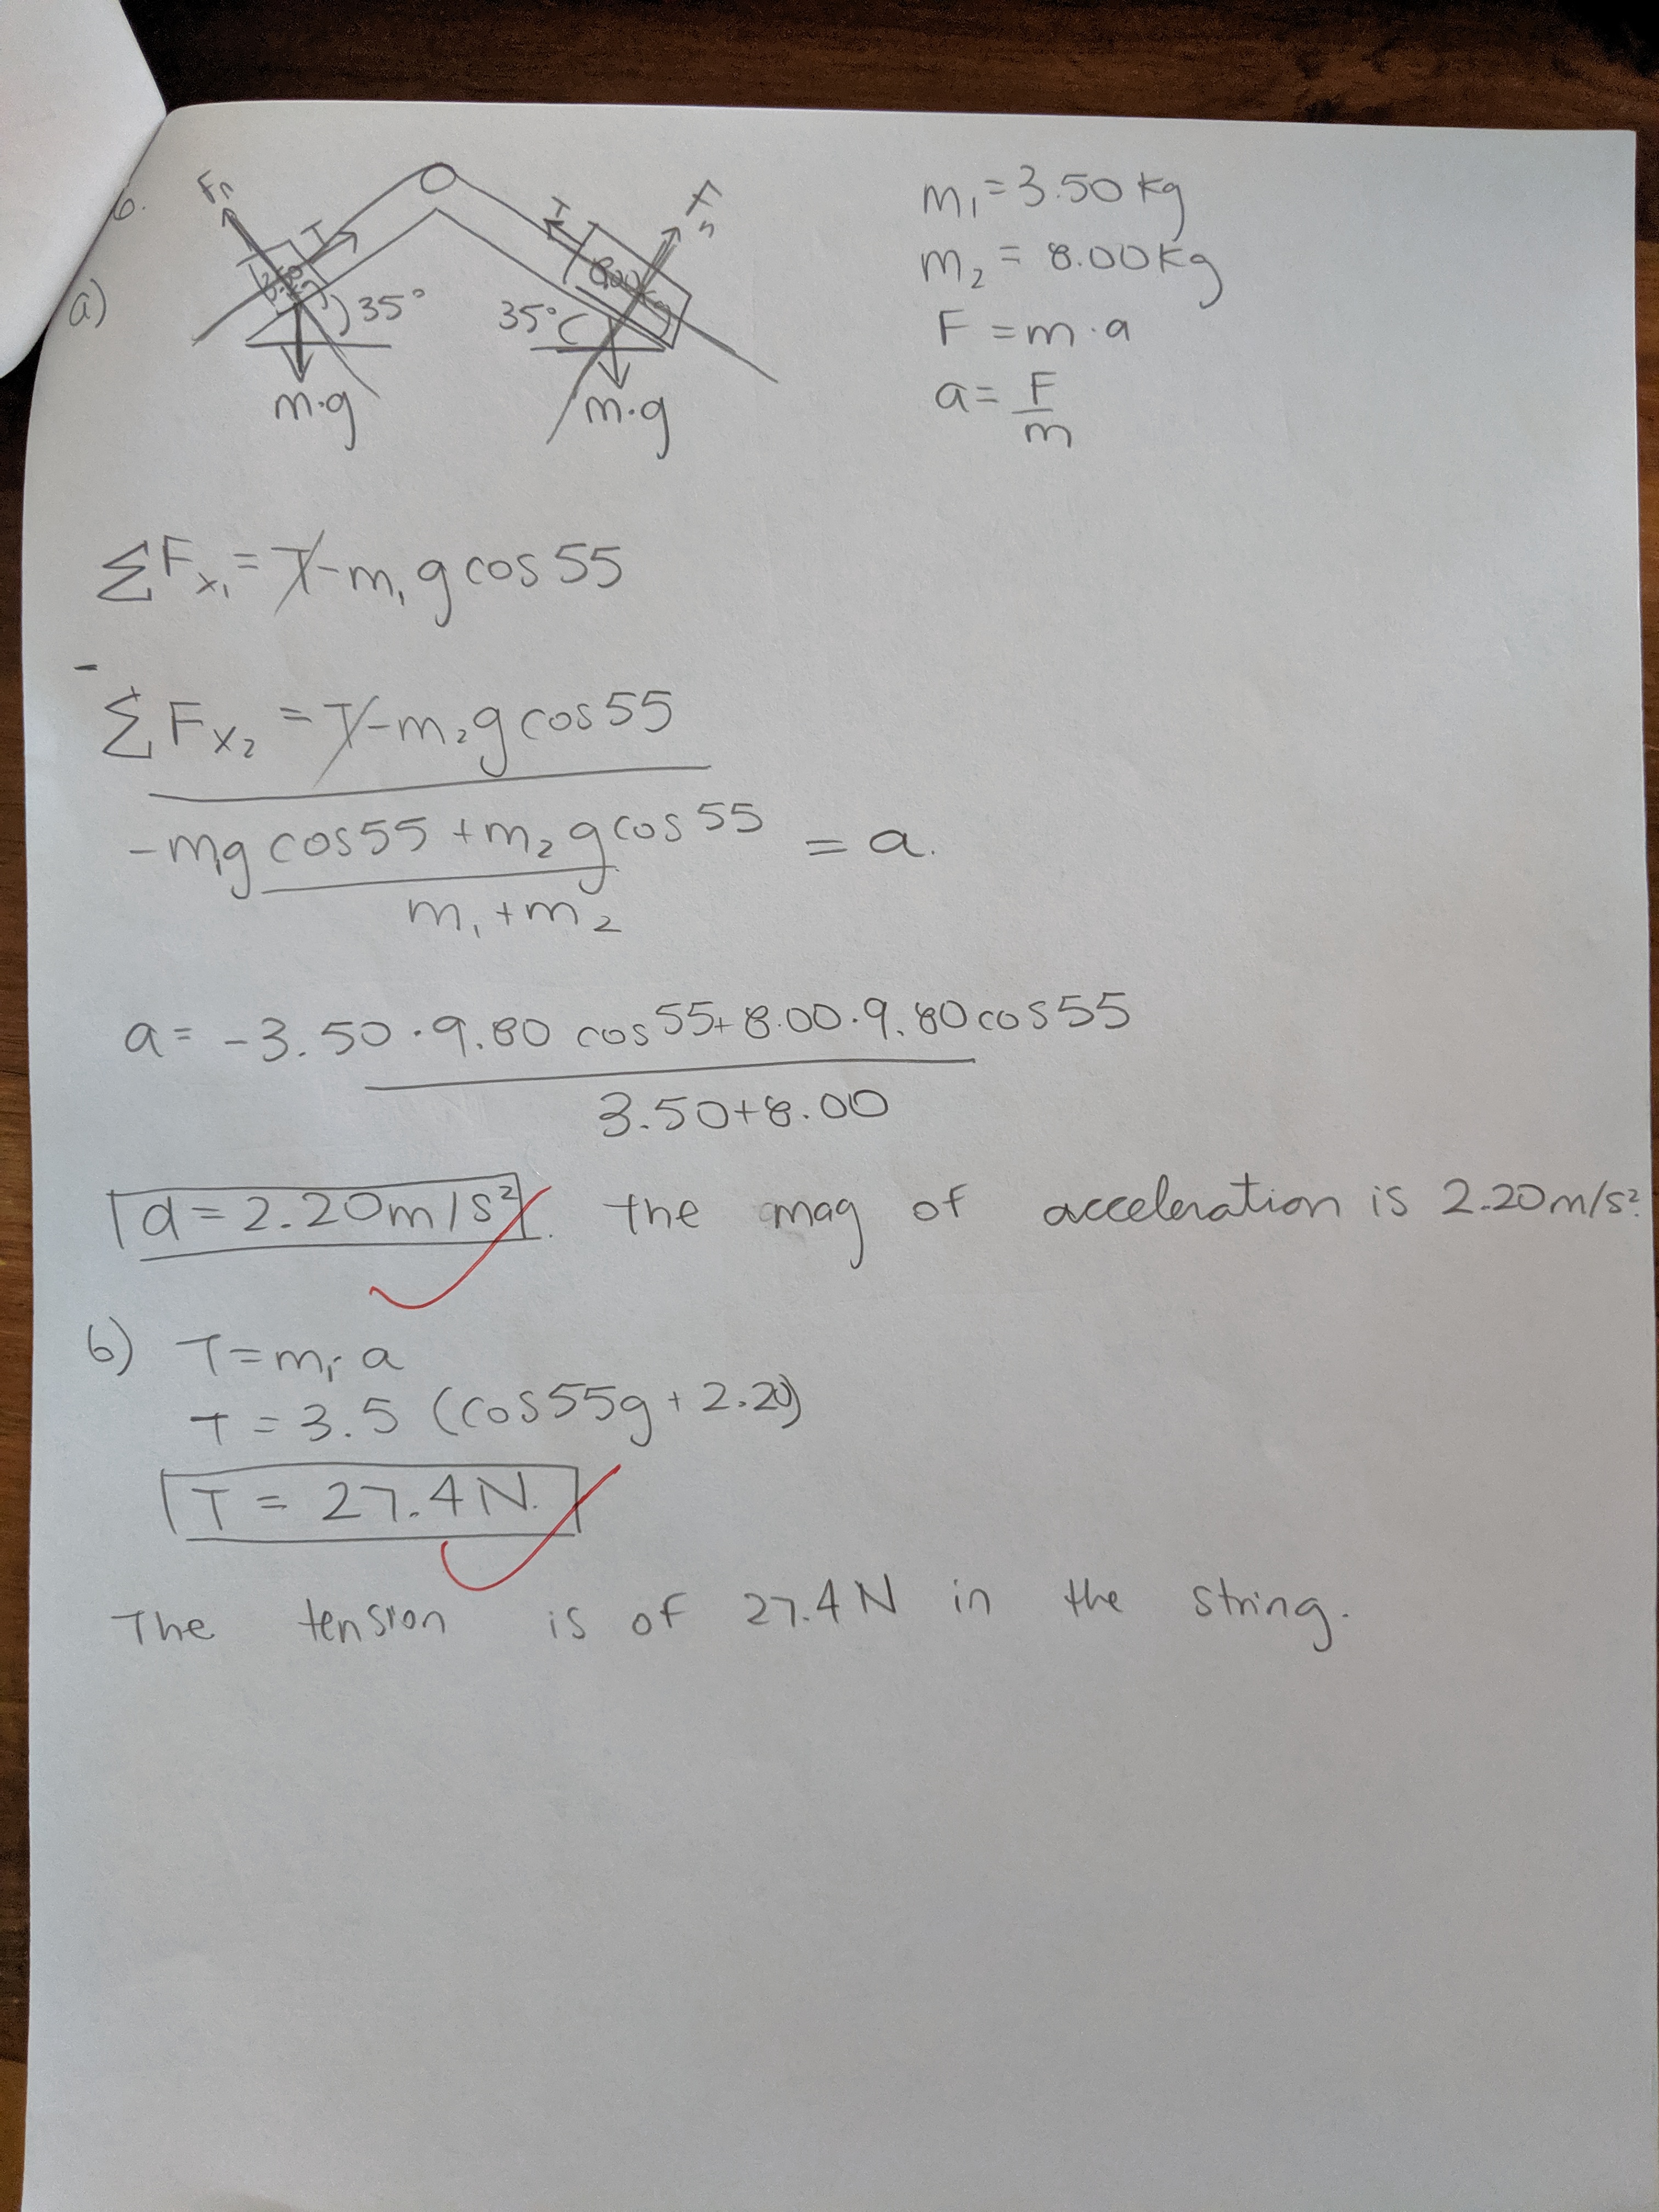 6.
a)
Fn
T
3.50 kg
35°
m·g
T
Fn
8.00 kg
35°
m·g
m₁ = 3.50 kg
m₂ = 8.00 kg
F = m·a
a = F/m
ΣFx₁ = T - m₁ g cos 55
-
ΣFx₂ = T - m₂ g cos 55
-m₁g cos 55 + m₂ g cos 55 = a.
m₁ + m₂
a = -3.50 · 9.80 cos 55 + 8.00 · 9.80 cos 55
3.50 + 8.00
a = 2.20 m/s². The mag of acceleration is 2.20 m/s².
b) T = m₁· a
T = 3.5 (cos 55g + 2.20)
T = 27.4 N.
The tension is of 27.4 N in the string.